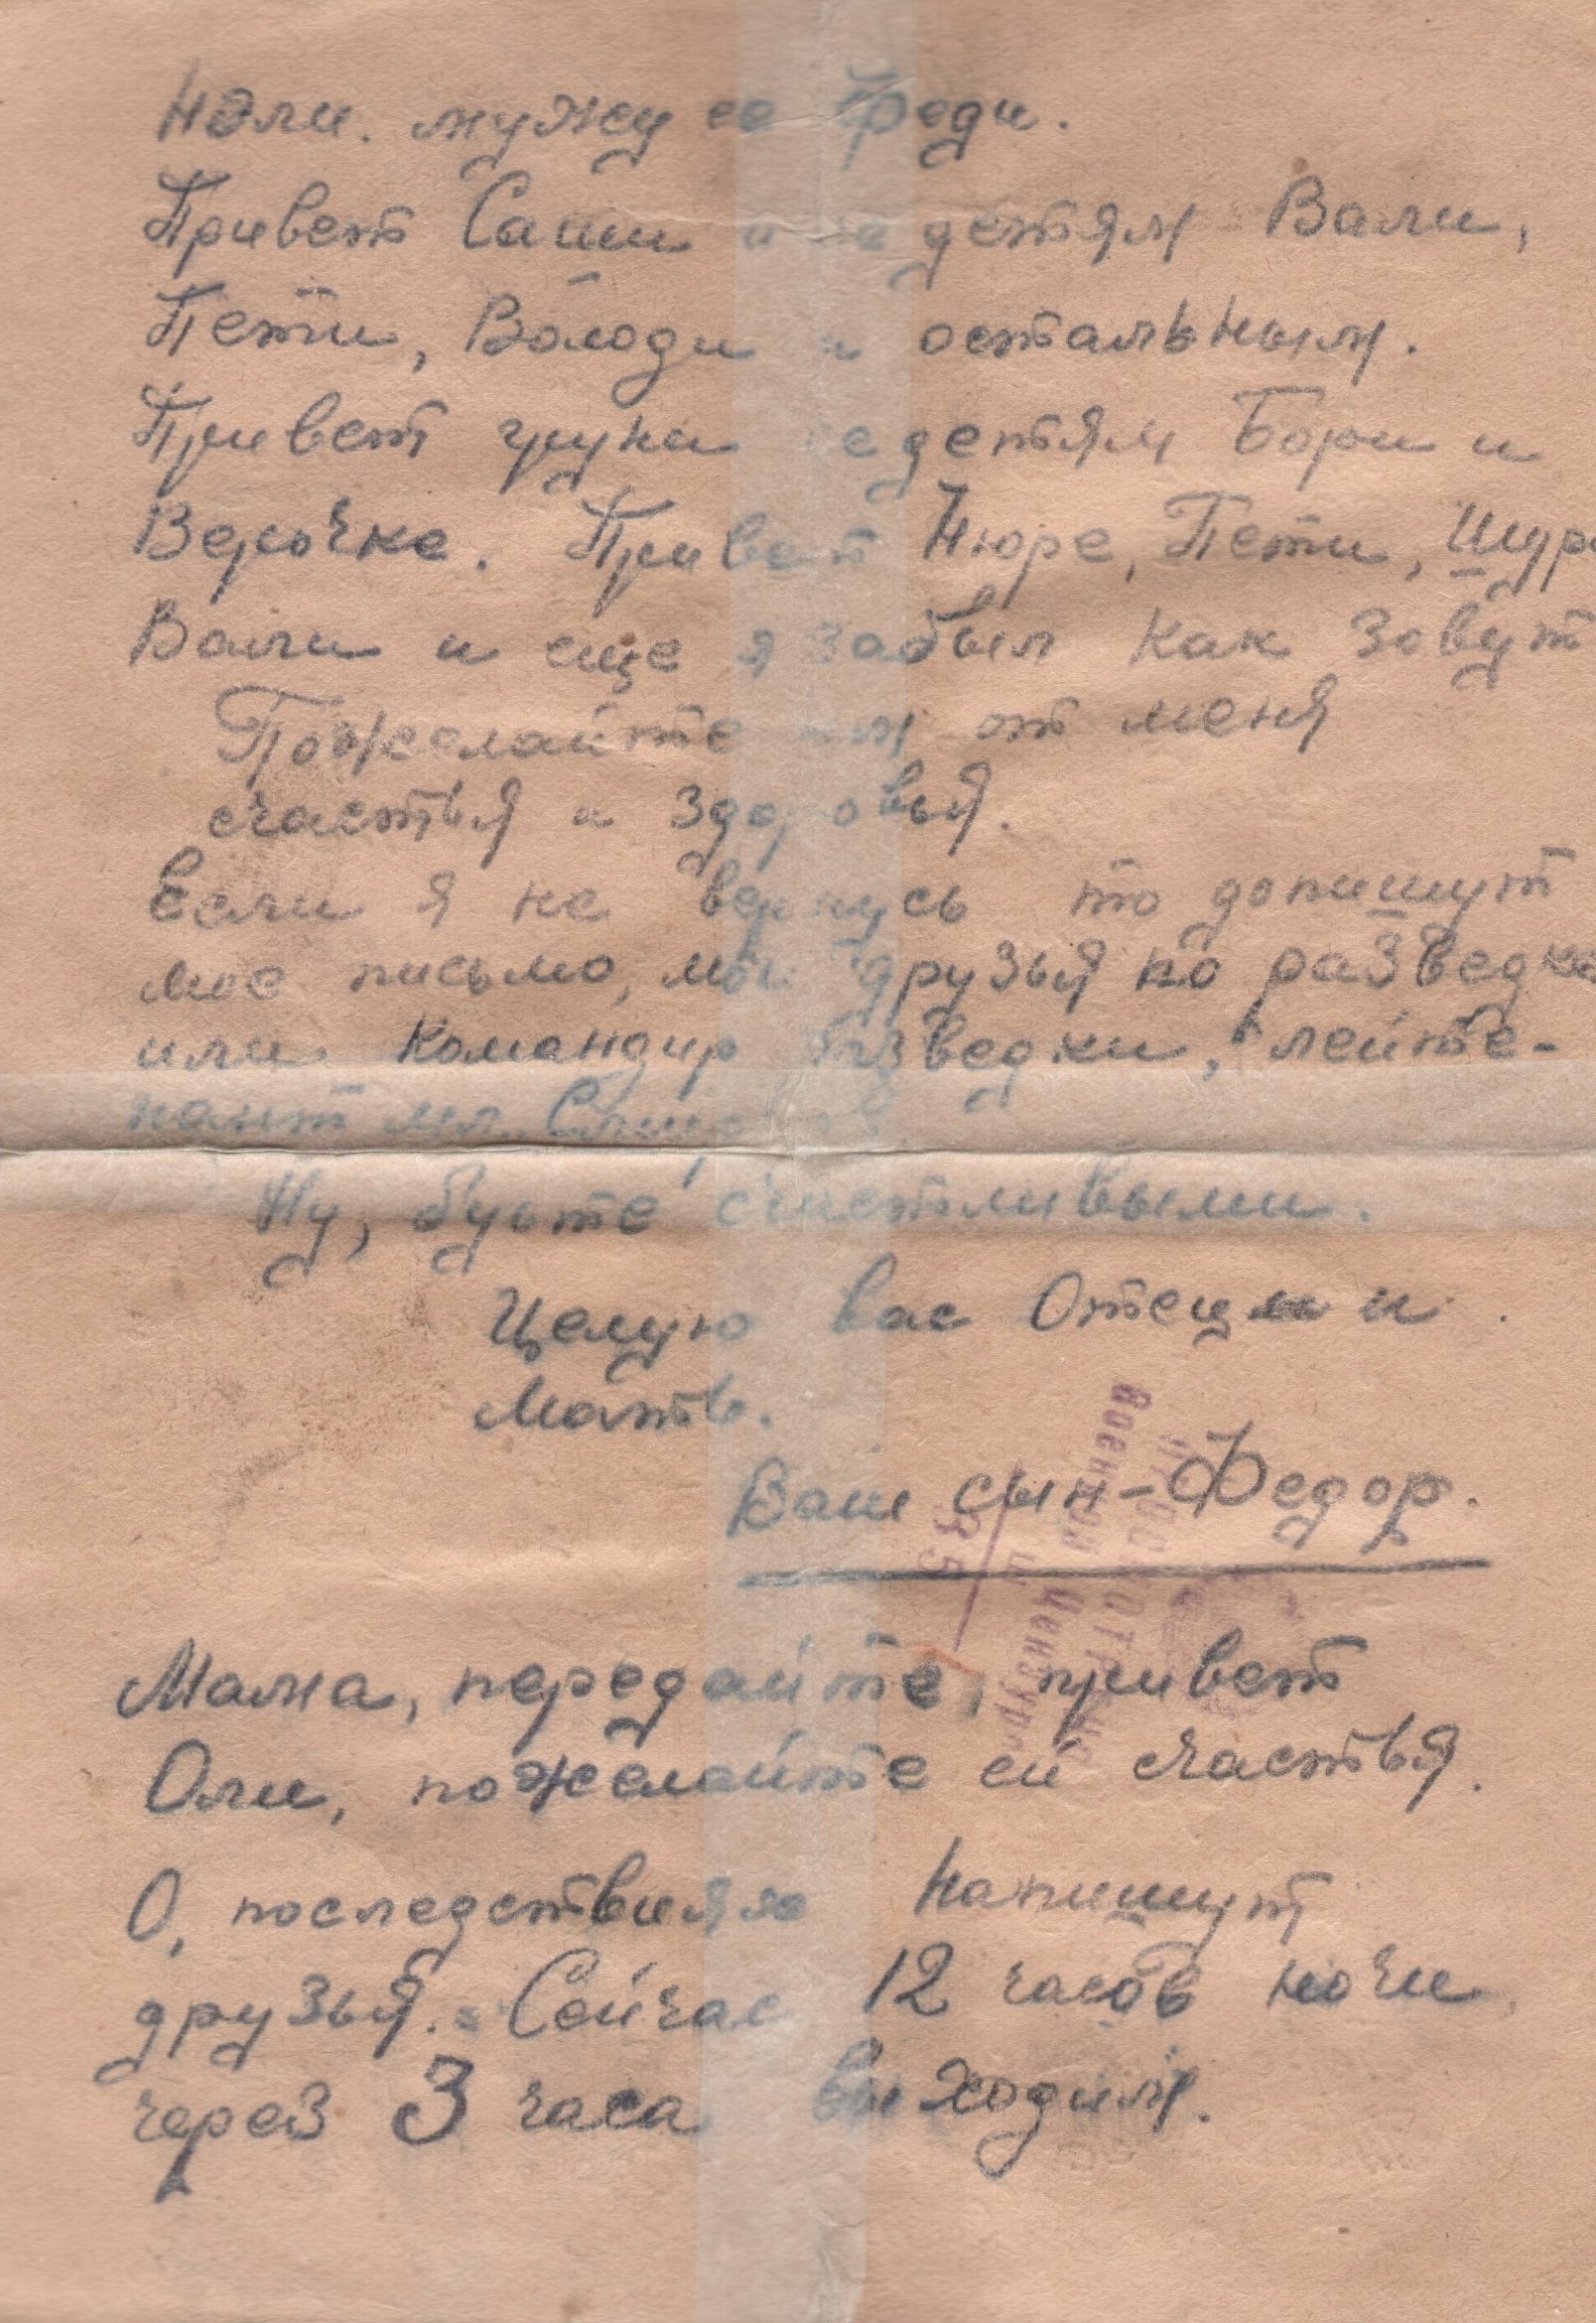 Нэли. мужу ее Феди.
Привет Саши и ее детям Вали,
Пети, Володи и остальным.
Привет ее детям Бори и
Верочке. Привет Нюре, Пети, Шуре
Вали и еще я забыл как зовут
Пожелайте им от меня
счастья и здоровья.
Если я не вернусь то допишут
мое письмо, мои друзья по разведке
или командир разведки, лейте-
нант мл.
Ну, будьте счастливыми.
Целую вас Отец и
Мать.
Ваш сын-Федор.
Мама, передайте, привет
Оли, пожелайте ей счастья.
О, последствиях напишут
друзья. Сейчас 12 часов ночи,
через 3 часа выходим.
ПРОСМОТРЕНО
Военной Цензурой
35